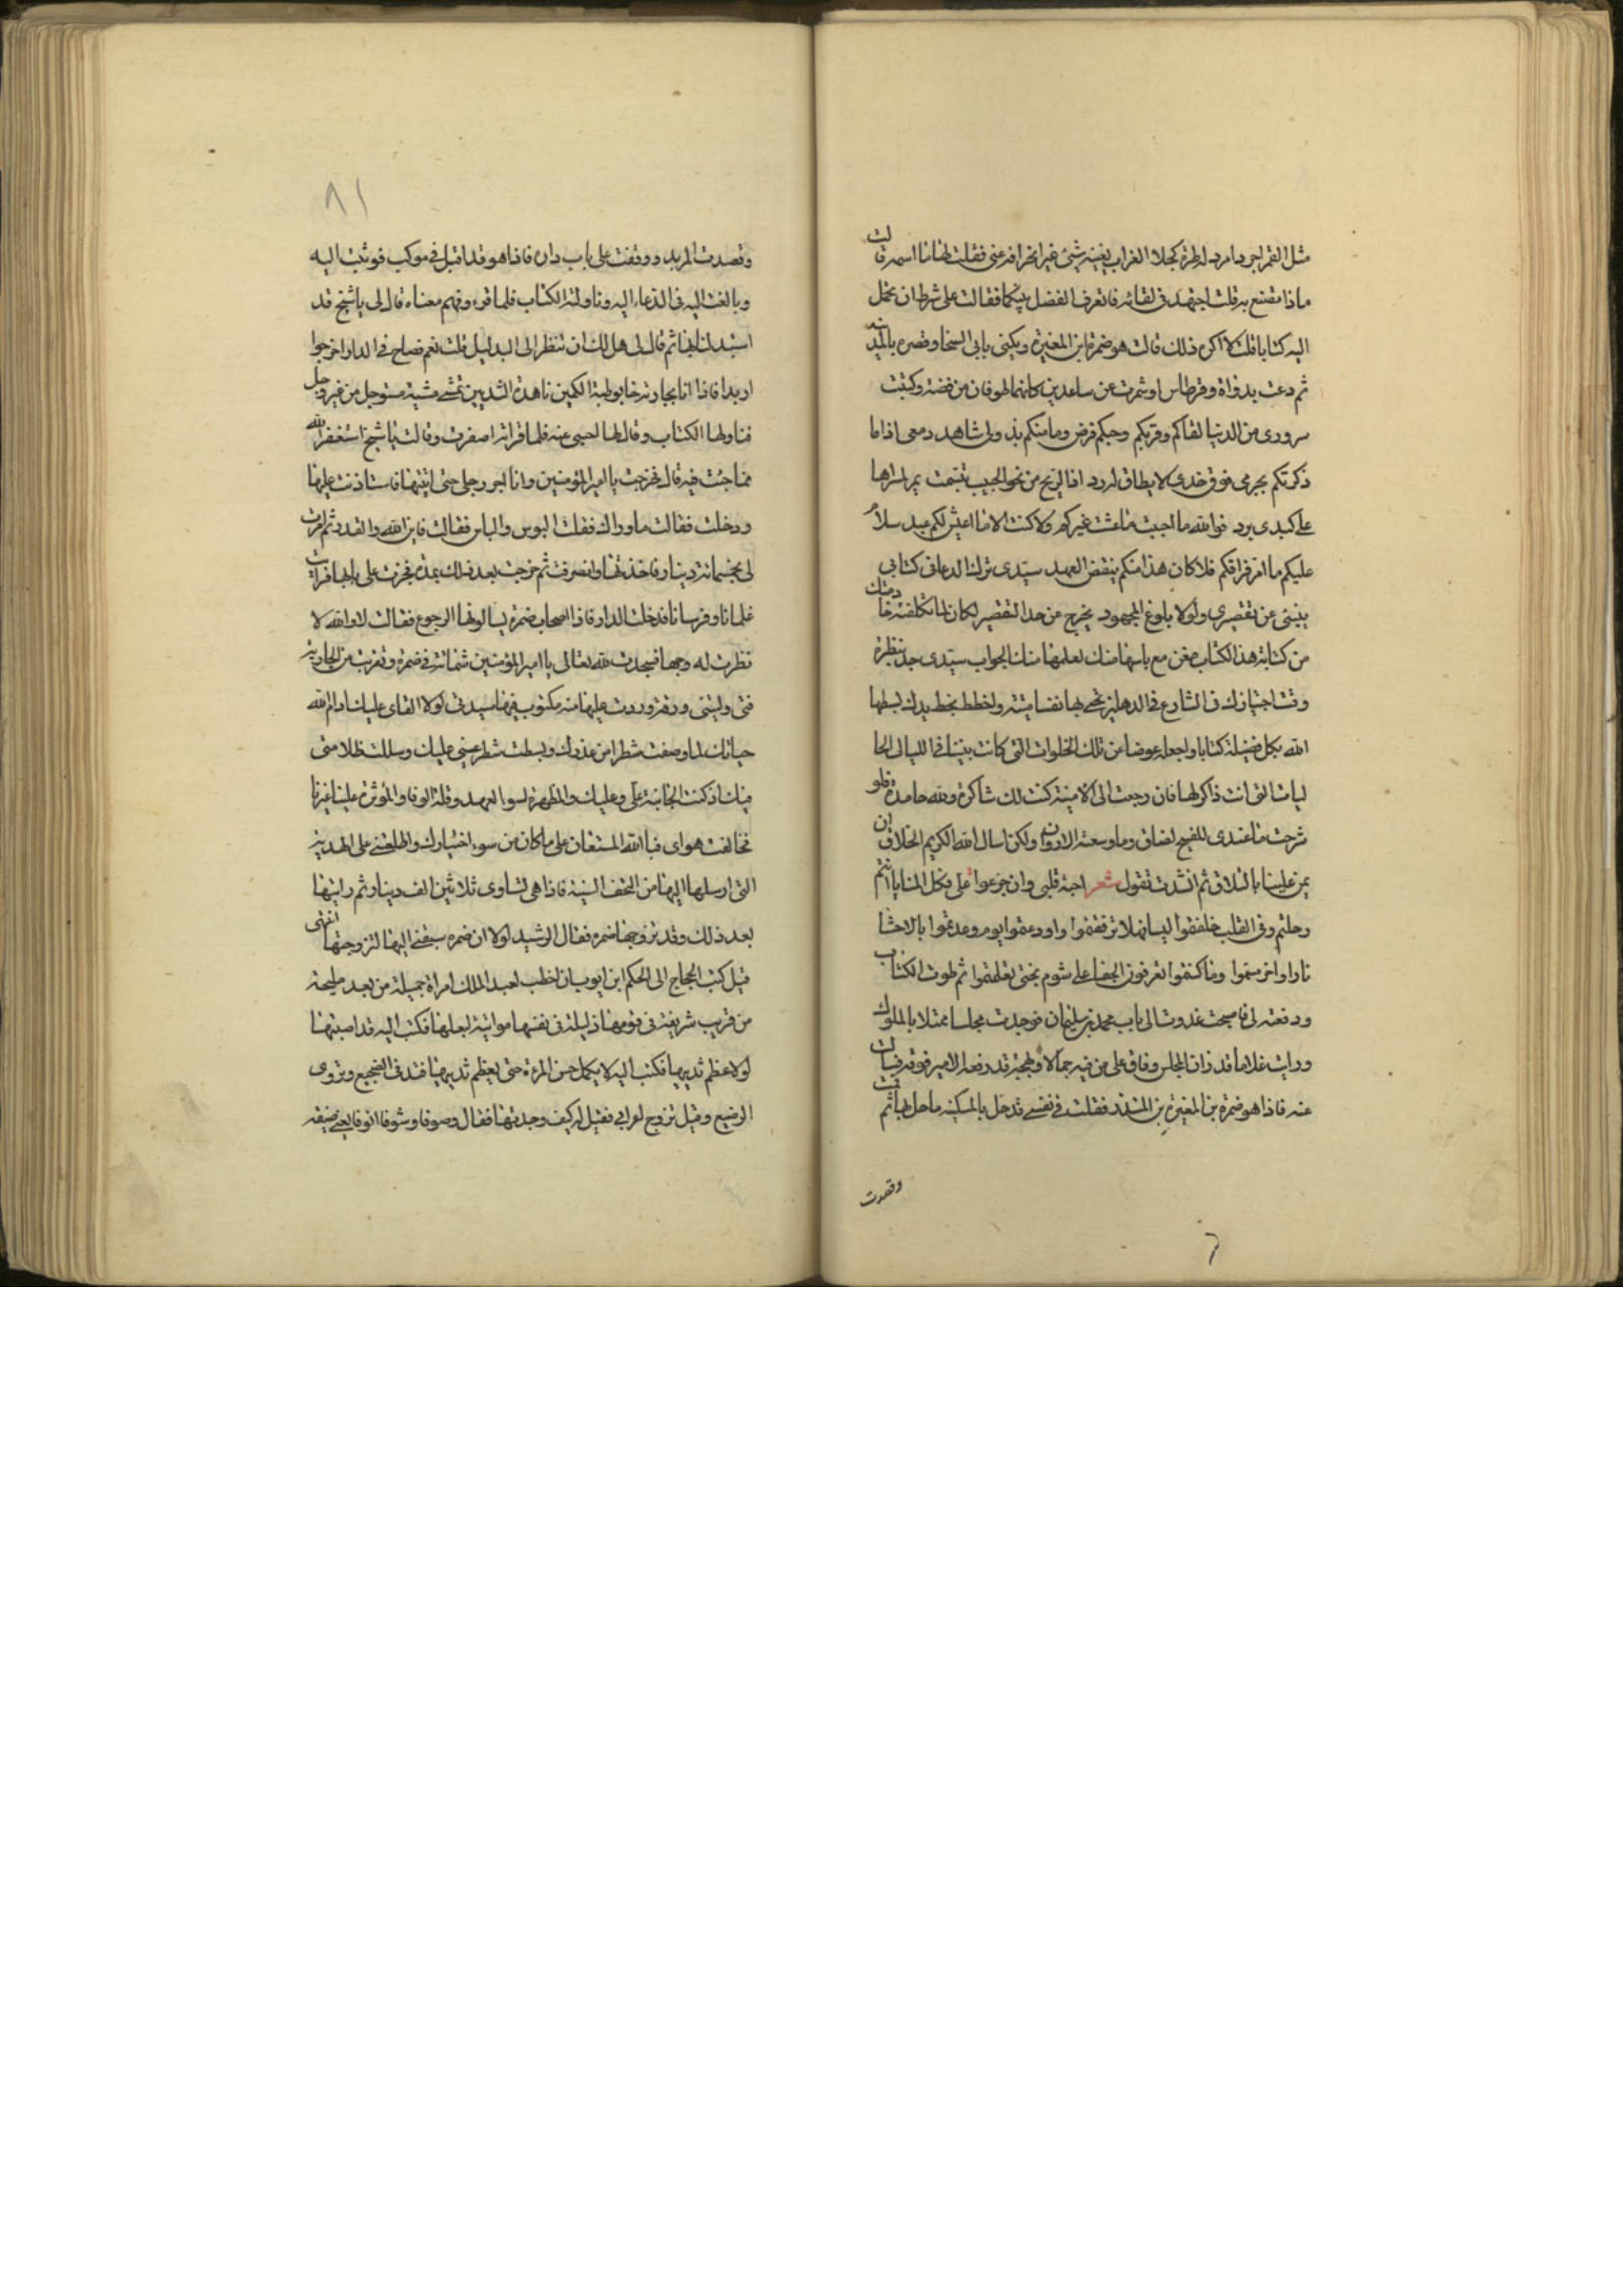 مثل القمر اجرد امرد له طرة كجلا الغراب يغنيه شئ غير انحرافه عنى فقلت لها ما اسمه قالت
ماذا تصنع به قلت اجتهد فى لقائه فاتعرف الفضل بينكما فقالت على شرط ان تحمل
اليه كتابا قلت لا اكره ذلك قالت هو ضمرة ابن المغيرة ويكنى بابى السخا وقصره بالمربد
ثم دعت بدواة وقرطاس وشمرت عن ساعدين كانهما طوفان من فضة وكتبت
سرورى من الدنيا لقاكم وقربكم وحبكم فرض وما منكم بد ولى شاهد دمعى اذا ما
ذكرتكم يجرى فوق خدى لا يطاق له رد اذا الريح من نحو الحبيب تنسمت
على كبدى برد فوالله ما احببت ما عشت غيركم ولا كنت الا ما اعيش لكم عبد سلام
عليكم ما امر فراقكم فلا كان هذا منكم ينقض العهد سيدى ترك الدعا فى كتابى
ينبئ عن تقصيرى ولولا بلوغ المجهود يخرج عن حد التقصير لكان لما تكلفته خادمتك
من كتابة هذا الكتاب مع ياسها منك لعلمها منك الجواب سيدى جد بنظرة
وقت اجتيازك فى الشارع فى الدهليز تحيى بها نفسا ميتة واخطط بخط يدك بسطها
الله بكل فضيلة كتابا واجعله عوضا عن تلك الخلوات التى كانت بيننا فى الليالى الخا
ليات التى انت ذاكر لها فان رجعت الى الامنية كنت لك شاكرة ولله حامدة فلو
شرحت ما عندى للفيح لضاق وما وسعته الاوراق ولكن اسال الله الكريم الخلاق ان
يمن علينا بالتلاق ثم انشدت تقول شعر احبة قلبى وان جزعوا على فكل المنايا انتم
رحلتم وفى القلب خلفتموا لهيبا فهلا ترفقتموا واودعتموا يوم ودعتموا بالاحشا
نارا واضرمتموا وما كنتموا تعرفون الجفا على شوم بختى تعلمتموا ثم طوت الكتاب
ودفعته لى فاصبحت غدوت الى باب محمد بن سليمان فوجدت مجلسا ممتلا بالملوك
ورايت غلاما قد زان المجلس وفاق على من فيه جمالا وبهجة قد رفعه الامير فوقه فسالت
عنه فاذا هو ضمرة بن المغيرة بن فقلت فى نفسى قد حل بالمسكينه ما حل بها ثم
وقصدت
٨١
وقصدت المربد ووقفت على باب داره فاذا هو قد اقبل فى موكب فوثبت اليه
وبالغت اليه فى الدعاء اليه وناولته الكتاب فلما قرءه وفهم معناه قال لى يا شيخ قد
استبدلنا بها ثم قال لى هل لك ان تنظر الى البديل قلت نعم فصاح فى الدار اخرجوا
فاذا انا بجارية رطبة الكمين ناهدة الثديين تمشى مشية مستوجل من غير وجل
فناولها الكتاب وقال لها اجيبى عنه فلما قراته اصفرت وقالت يا شيخ استغفر الله
مما جئت فيه قال فخرجت يا امير المؤمنين وانا اجر رجلى حتى اتيتها فاستاذنت عليها
ودخلت فقالت ما وراك فقلت البوس والياس فقالت فاين الله والقدر ثم امرت
لى بخمسماية دينار فاخذتها وانصرفت ثم خرجت بعد ذلك بمدة فجزت على بابها فرايت
غلمانا وفرسانا فدخلت الدار فاذا اصحاب ضمرة يسالونها الرجوع فقالت لا والله لا
نظرت له وجها فسجدت لله تعالى يا امير المؤمنين شماتة فى ضمرة وتقربت من الجارية
وردت عليها منه مكتوب فيها سيدتى لولا ابقاى عليك ادام الله
حياتك لما وصفت شطرا من غدرك وبسطت شطر عتبى عليك وسللت ظلامتى
فيك اذ كنت الجانية على وعليك والمظهرة لسوا العهد وقلة الوفا والمؤثرة علينا غيرنا
تخالفت هواى فبا الله المستعان على ما كان من سوء اختيارك واطلعتنى على الهدية
التى ارسلها اليها من التحف السنية فاذا هى تساوى ثلاثين الف دينار ثم رايتها
بعد ذلك وقد تزوجها ضمرة فقال الرشيد لولا ان ضمرة سبقنى اليها لتزوجتها انتهى
قيل كتب الحجاج الى الحكم ابن ايوب ان اخطب لعبد الملك امراة جميلة من بعد مليحة
من قريب شريفة فى قومها ذليلة فى نفسها مواتية لبعلها فكتب اليه قد اصبتها
لولا عظم ثدييها فكتب اليه لا يكمل حسن المرءة حتى يعظم ثدييها فتدفى الضجيع وتروى
الرضيع وقيل تزوج اعرابى فقيل له كيف وجدتها فقال رصوفا رشوفا انوفا يعنى ضيقه